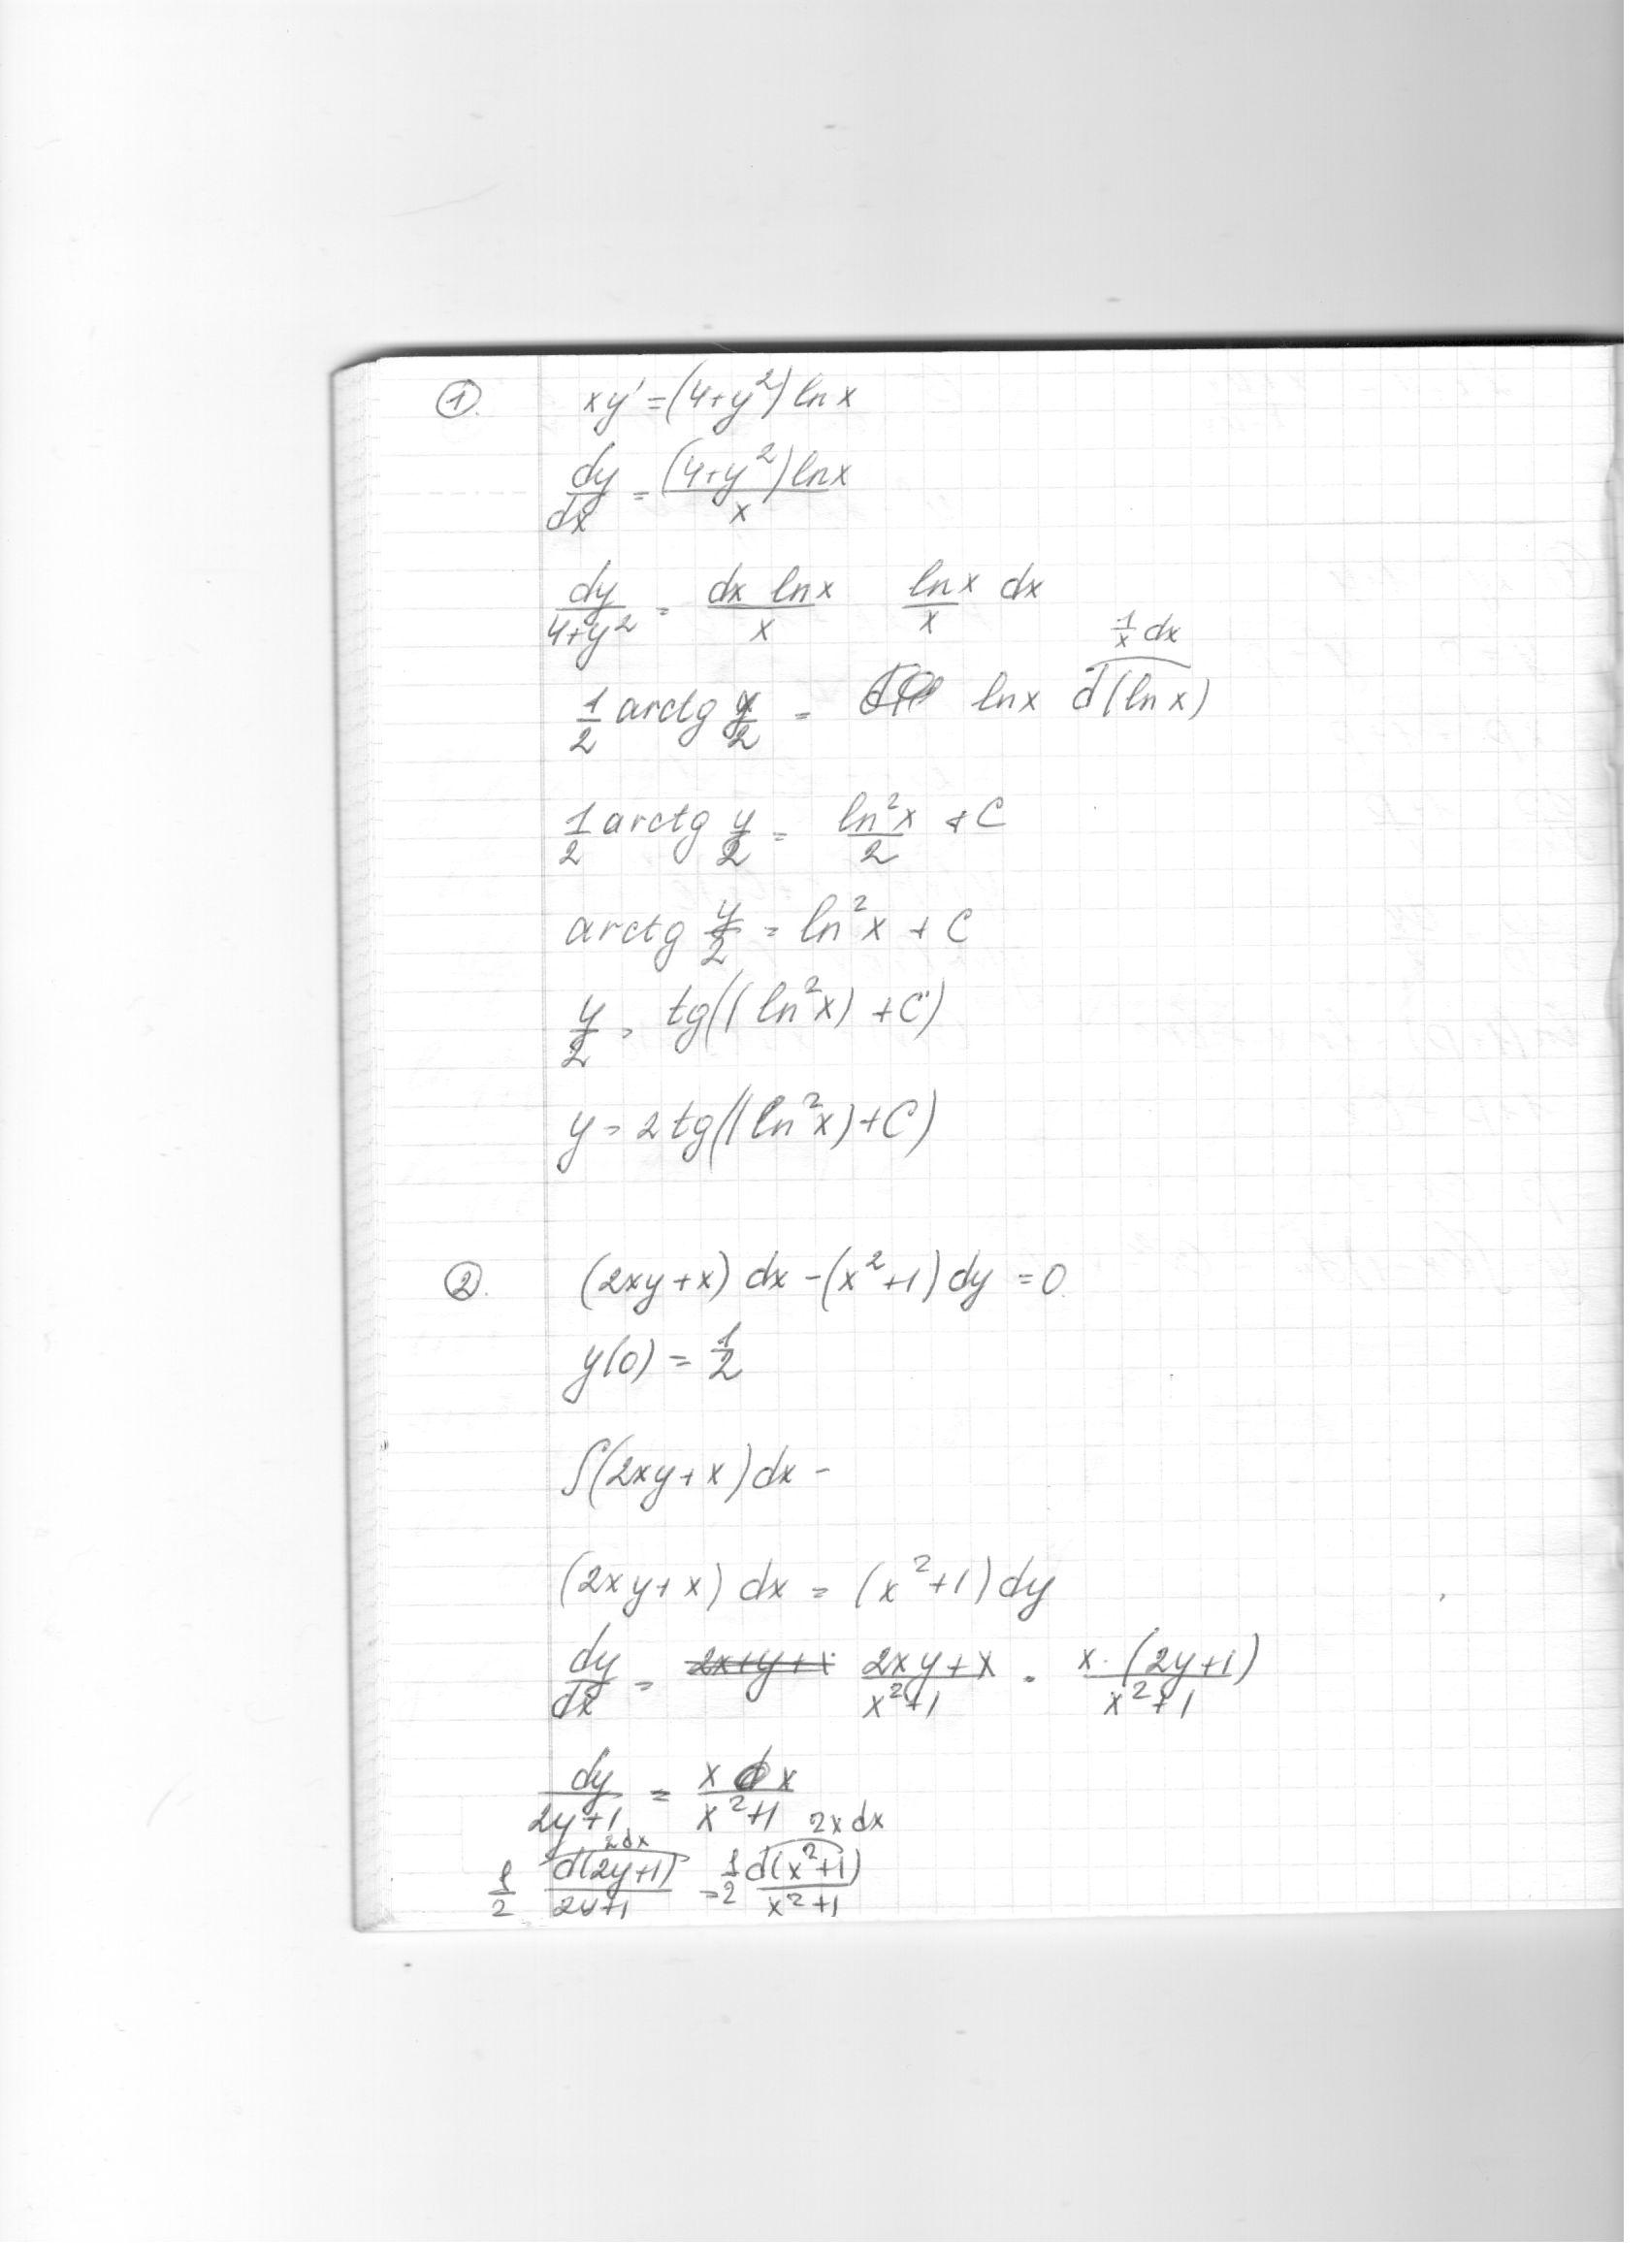 1. xy' = (4+y²) ln x
dy/dx = (4+y²) ln x / x
dy/(4+y²) = dx ln x / x   ln x / x dx
1/x dx
1/2 arctg y/2 = ln x d(ln x)
1/2 arctg y/2 = ln²x / 2 + C
arctg y/2 = ln²x + C
y/2 = tg((ln²x) + C)
y = 2 tg((ln²x) + C)
2. (2xy + x) dx - (x²+1) dy = 0.
y(0) = 1/2
∫(2xy + x) dx -
(2xy + x) dx = (x²+1) dy
dy/dx = 2x+y+x (2xy+x)/(x²+1) = x·(2y+1)/(x²+1)
dy/(2y+1) = x dx/(x²+1)
2dx   2x dx
1/2 d(2y+1)/(2y+1) = 1/2 d(x²+1)/(x²+1)